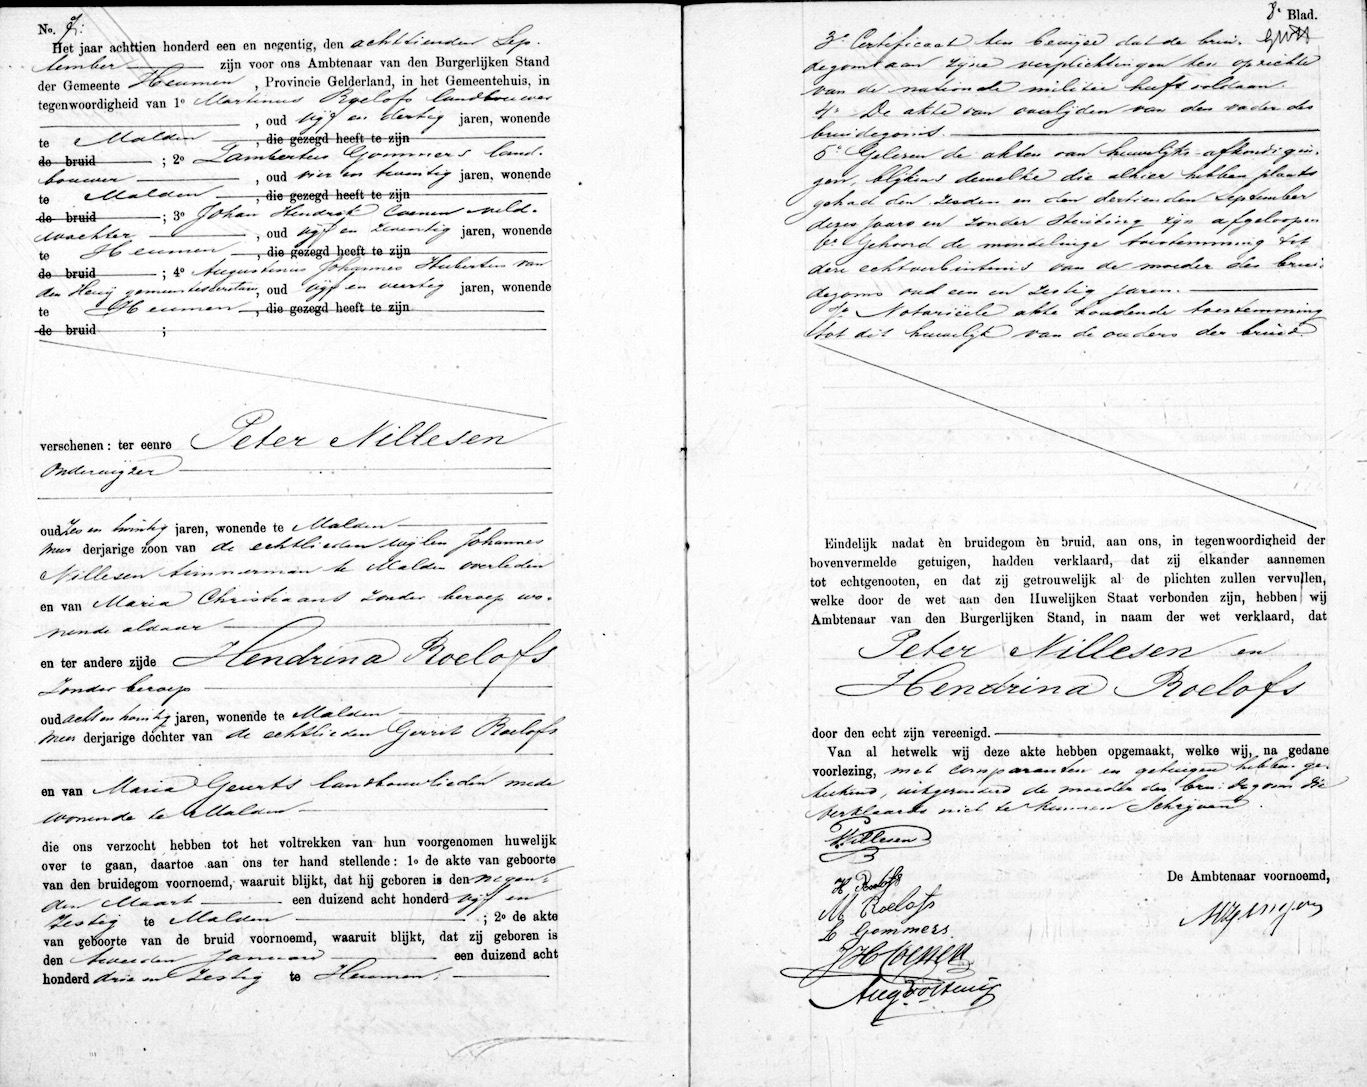 No. 7.
Het jaar achttien honderd een en negentig, den achttienden Sep-
tember zijn voor ons Ambtenaar van den Burgerlijken Stand
der Gemeente Heumen, Provincie Gelderland, in het Gemeentehuis, in
tegenwoordigheid van 1o Martinus Roelofs landbouwer
, oud vijf en dertig jaren, wonende
te Malden, die gezegd heeft te zijn
de bruid ; 2o Lambertus Gommers land-
bouwer, oud vier en twintig jaren, wonende
te Malden, die gezegd heeft te zijn
de bruid ; 3o Johan Hendrik Coenen veld-
wachter, oud vijf en twintig jaren, wonende
te Heumen, die gezegd heeft te zijn
de bruid ; 4o Augustinus Johannes Hubertus van
den Heuij gemeentesecretaris, oud vijf en veertig jaren, wonende
te Heumen, die gezegd heeft te zijn
de bruid ;
verschenen: ter eenre Peter Nillesen
onderwijzer
oud zes en twintig jaren, wonende te Malden
meer derjarige zoon van de echtlieden wijlen Johannes
Nillesen timmerman te Malden overleden
en van Maria Christiaans zonder beroep wo-
nende aldaar
en ter andere zijde Hendrina Roelofs
zonder beroep
oud acht en twintig jaren, wonende te Malden
meer derjarige dochter van de echtlieden Gerrit Roelofs
en van Maria Geurts landbouwlieden mede
wonende te Malden
die ons verzocht hebben tot het voltrekken van hun voorgenomen huwelijk
over te gaan, daartoe aan ons ter hand stellende: 1o de akte van geboorte
van den bruidegom voornoemd, waaruit blijkt, dat hij geboren is den negen-
den Maart een duizend acht honderd vijf en
zestig te Malden ; 2o de akte
van geboorte van de bruid voornoemd, waaruit blijkt, dat zij geboren is
den tweeden Januari een duizend acht
honderd drie en zestig te Heumen;
8e Blad.
3o Certificaat ten bewijze dat de brui-
degom aan zijne verplichtingen ten opzichte
van de nationale militie heeft voldaan.
4o De akte van overlijden van den vader des
bruidegoms.
5o Gelezen de akten van huwelijks-afkondigin-
gen, blijkens dewelke die alhier hebben plaats
gehad den zesden en den dertienden September
dezes jaars en zonder stuiting zijn afgeloopen
6o Gehoord de mondelinge toestemming tot
deze echtverbintenis van de moeder des brui-
degoms oud een en zestig jaren.
7o Notariëele akte houdende toestemming
tot dit huwelijk van de ouders der bruid.
Eindelijk nadat èn bruidegom èn bruid, aan ons, in tegenwoordigheid der
bovenvermelde getuigen, hadden verklaard, dat zij elkander aannemen
tot echtgenooten, en dat zij getrouwelijk al de plichten zullen vervullen,
welke door de wet aan den Huwelijken Staat verbonden zijn, hebben wij
Ambtenaar van den Burgerlijken Stand, in naam der wet verklaard, dat
Peter Nillesen en
Hendrina Roelofs
door den echt zijn vereenigd.
Van al hetwelk wij deze akte hebben opgemaakt, welke wij, na gedane
voorlezing, met comparanten en getuigen hebben ge-
teekend, uitgezonderd de moeder des bruidegoms die
verklaarde niet te kunnen schrijven.
P. Nillesen
H Roelofs
De Ambtenaar voornoemd,
M Roelofs
L Gommers
JH Coenen